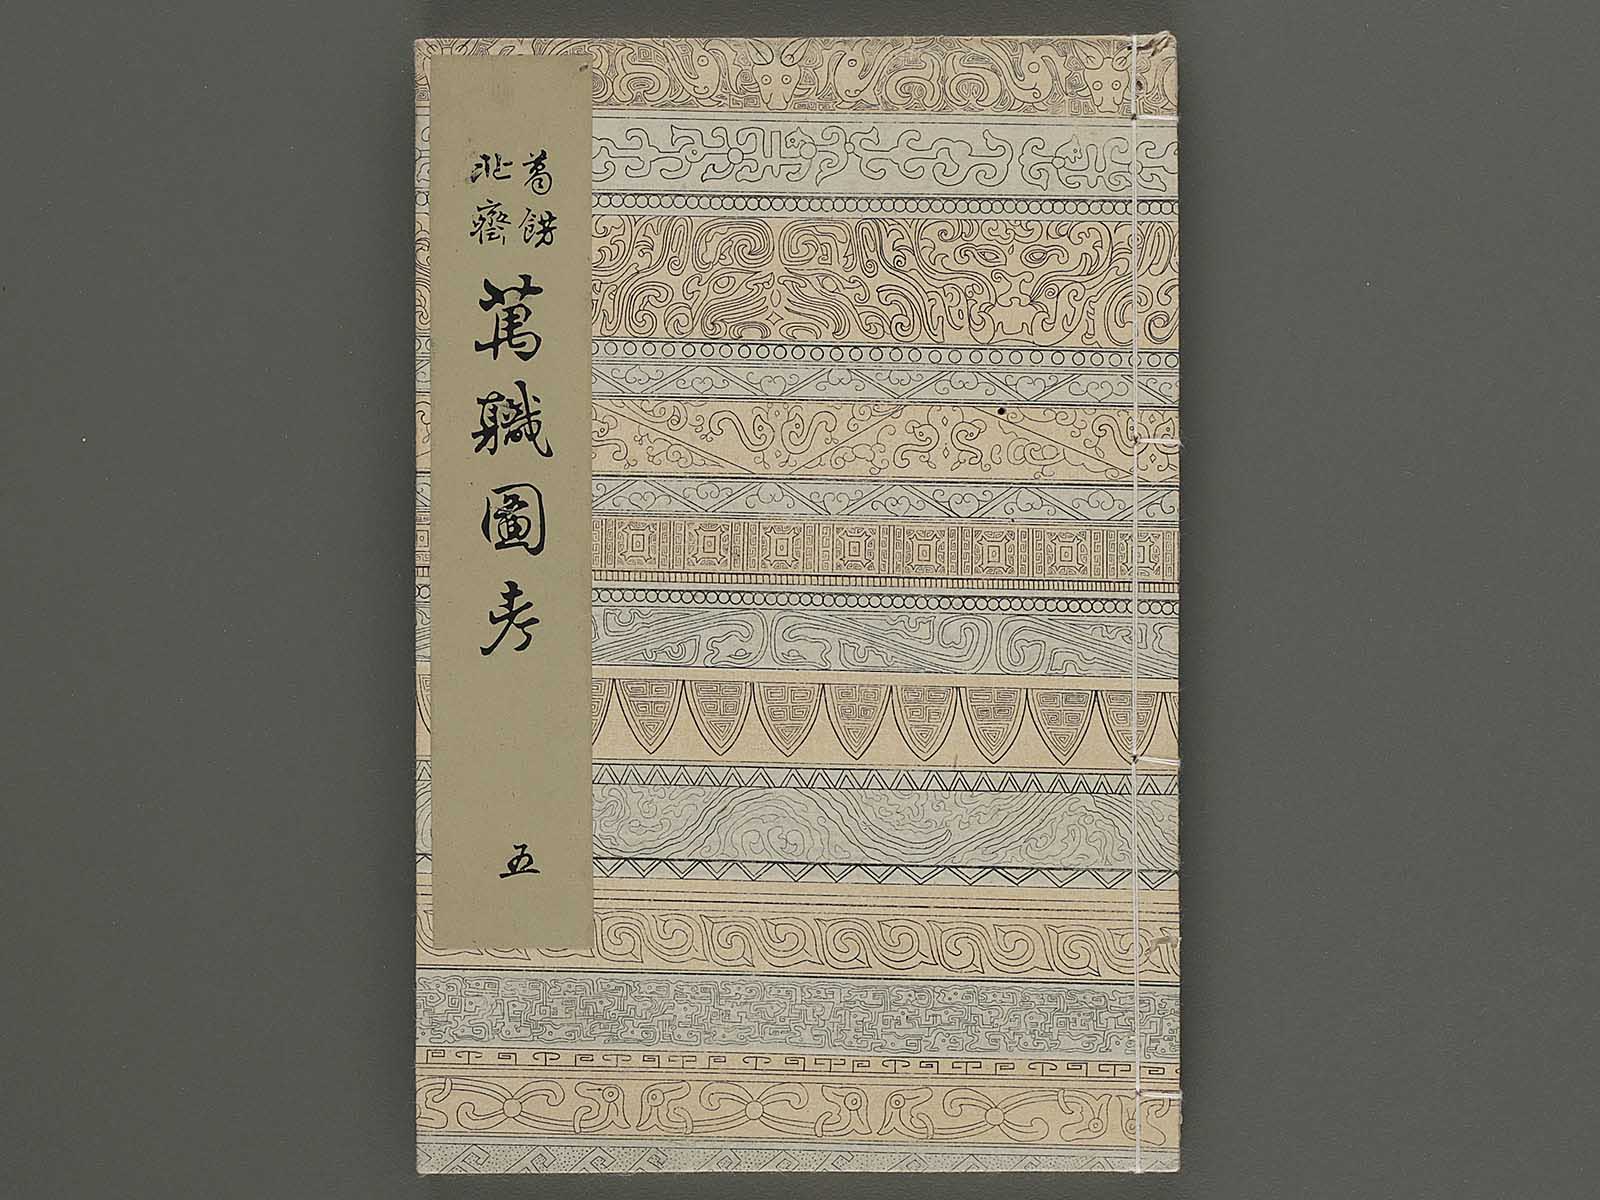 葛飾
北齋
萬職圖考
五